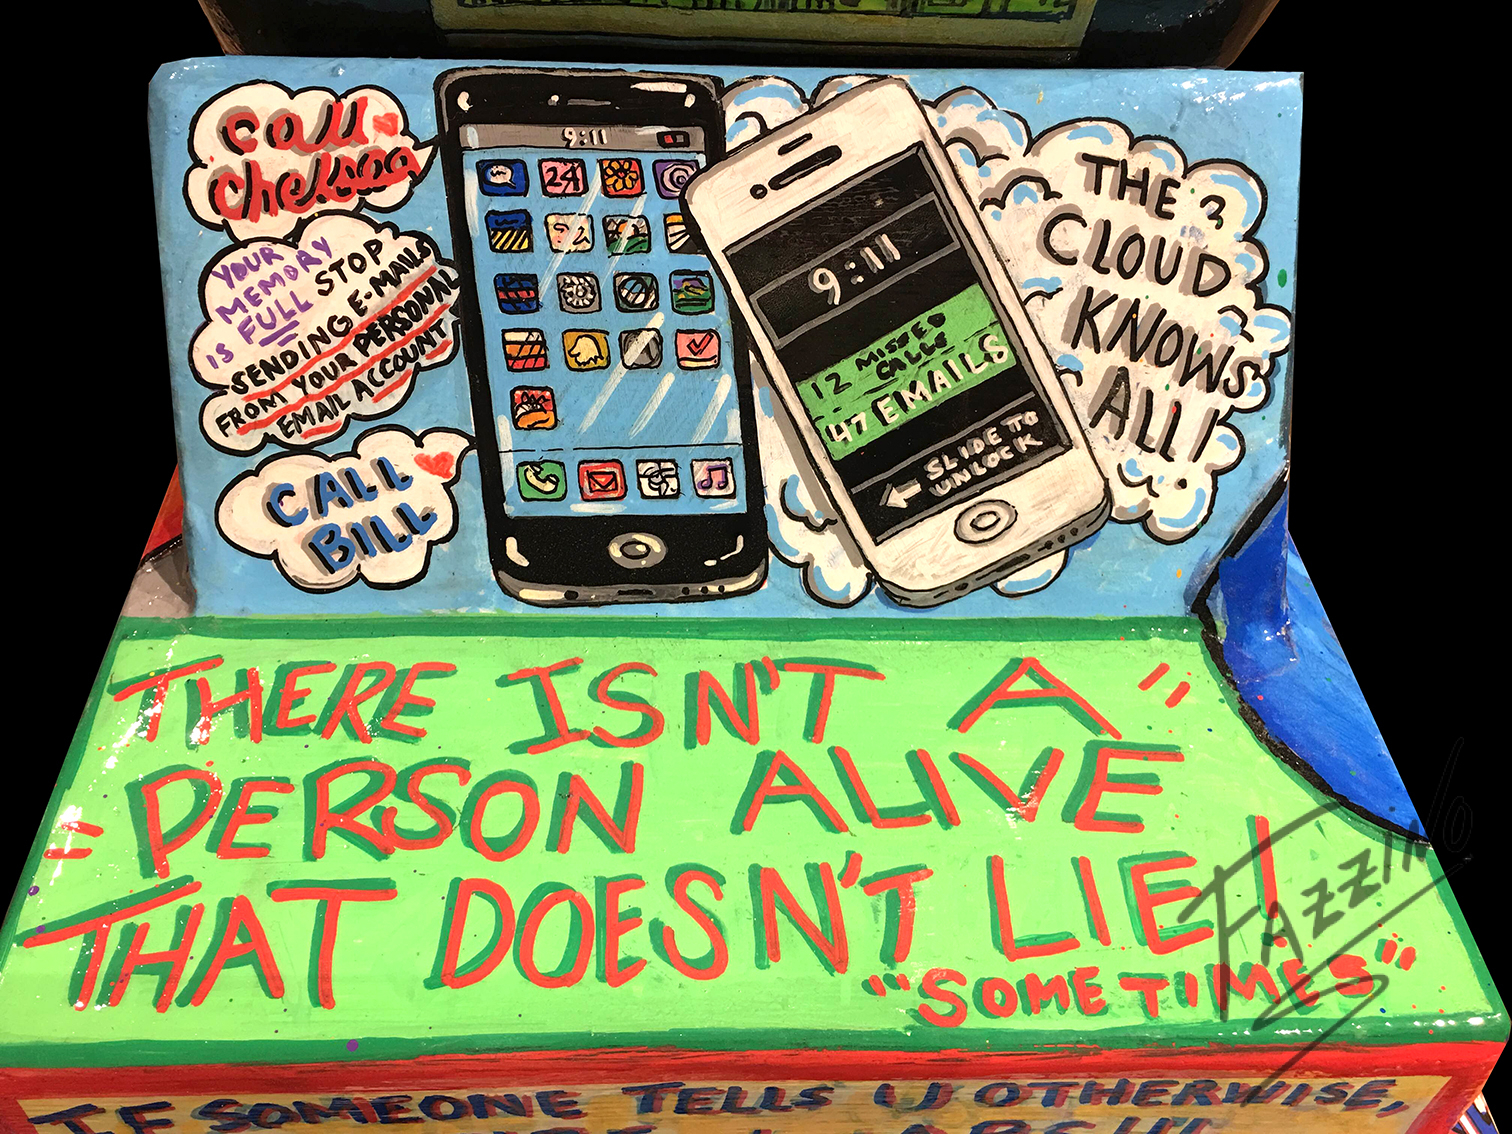 Call
Chelsea
YOUR
MEMORY
IS FULL STOP
SENDING E-MAILS
FROM YOUR PERSONAL
EMAIL ACCOUNT
CALL
BILL
9:11
24
9:11
12 MISSED
CALLS
47 EMAILS
SLIDE TO
UNLOCK
THE
CLOUD
KNOWS
ALL!
THERE ISN'T A "
= PERSON ALIVE
THAT DOESN'T LIE!
"SOMETIMES"
FAZZINO
IF SOMEONE TELLS U OTHERWISE,